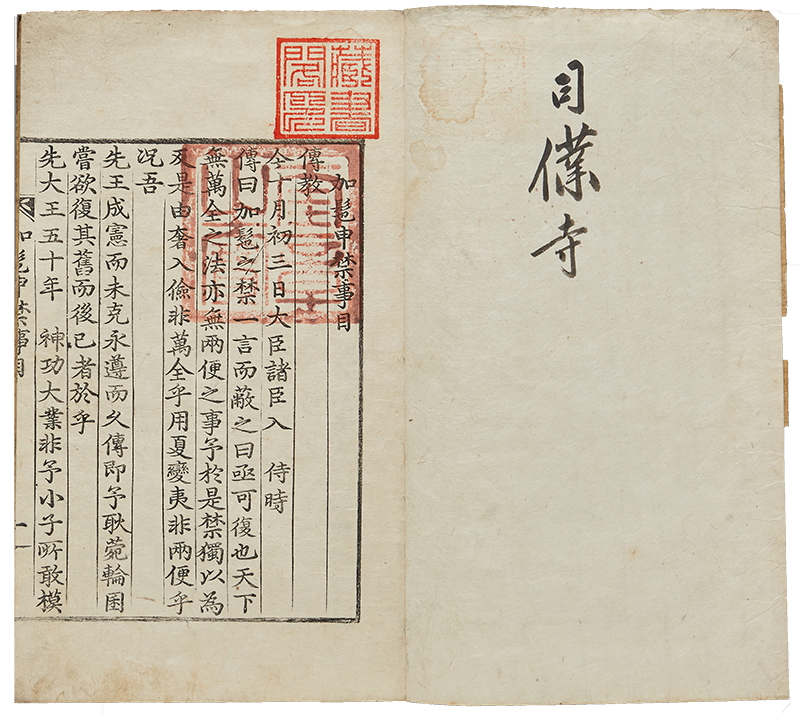 司僕寺
藏書
閣印
加髢申禁事目
傳教
今十月初三日大臣諸臣入　侍時
傳曰加髢之禁一言而蔽之曰亟可復也天下
無萬全之法亦無兩便之事予於是禁獨以為
反是由奢入儉非萬全乎用夏變夷非兩便乎
况吾
先王成憲而未克永遵而久傳即予耿菀輪囷
嘗欲復其舊而後已者於乎
先大王五十年　神功大業非予小子所敢模
加髢申禁事目
一